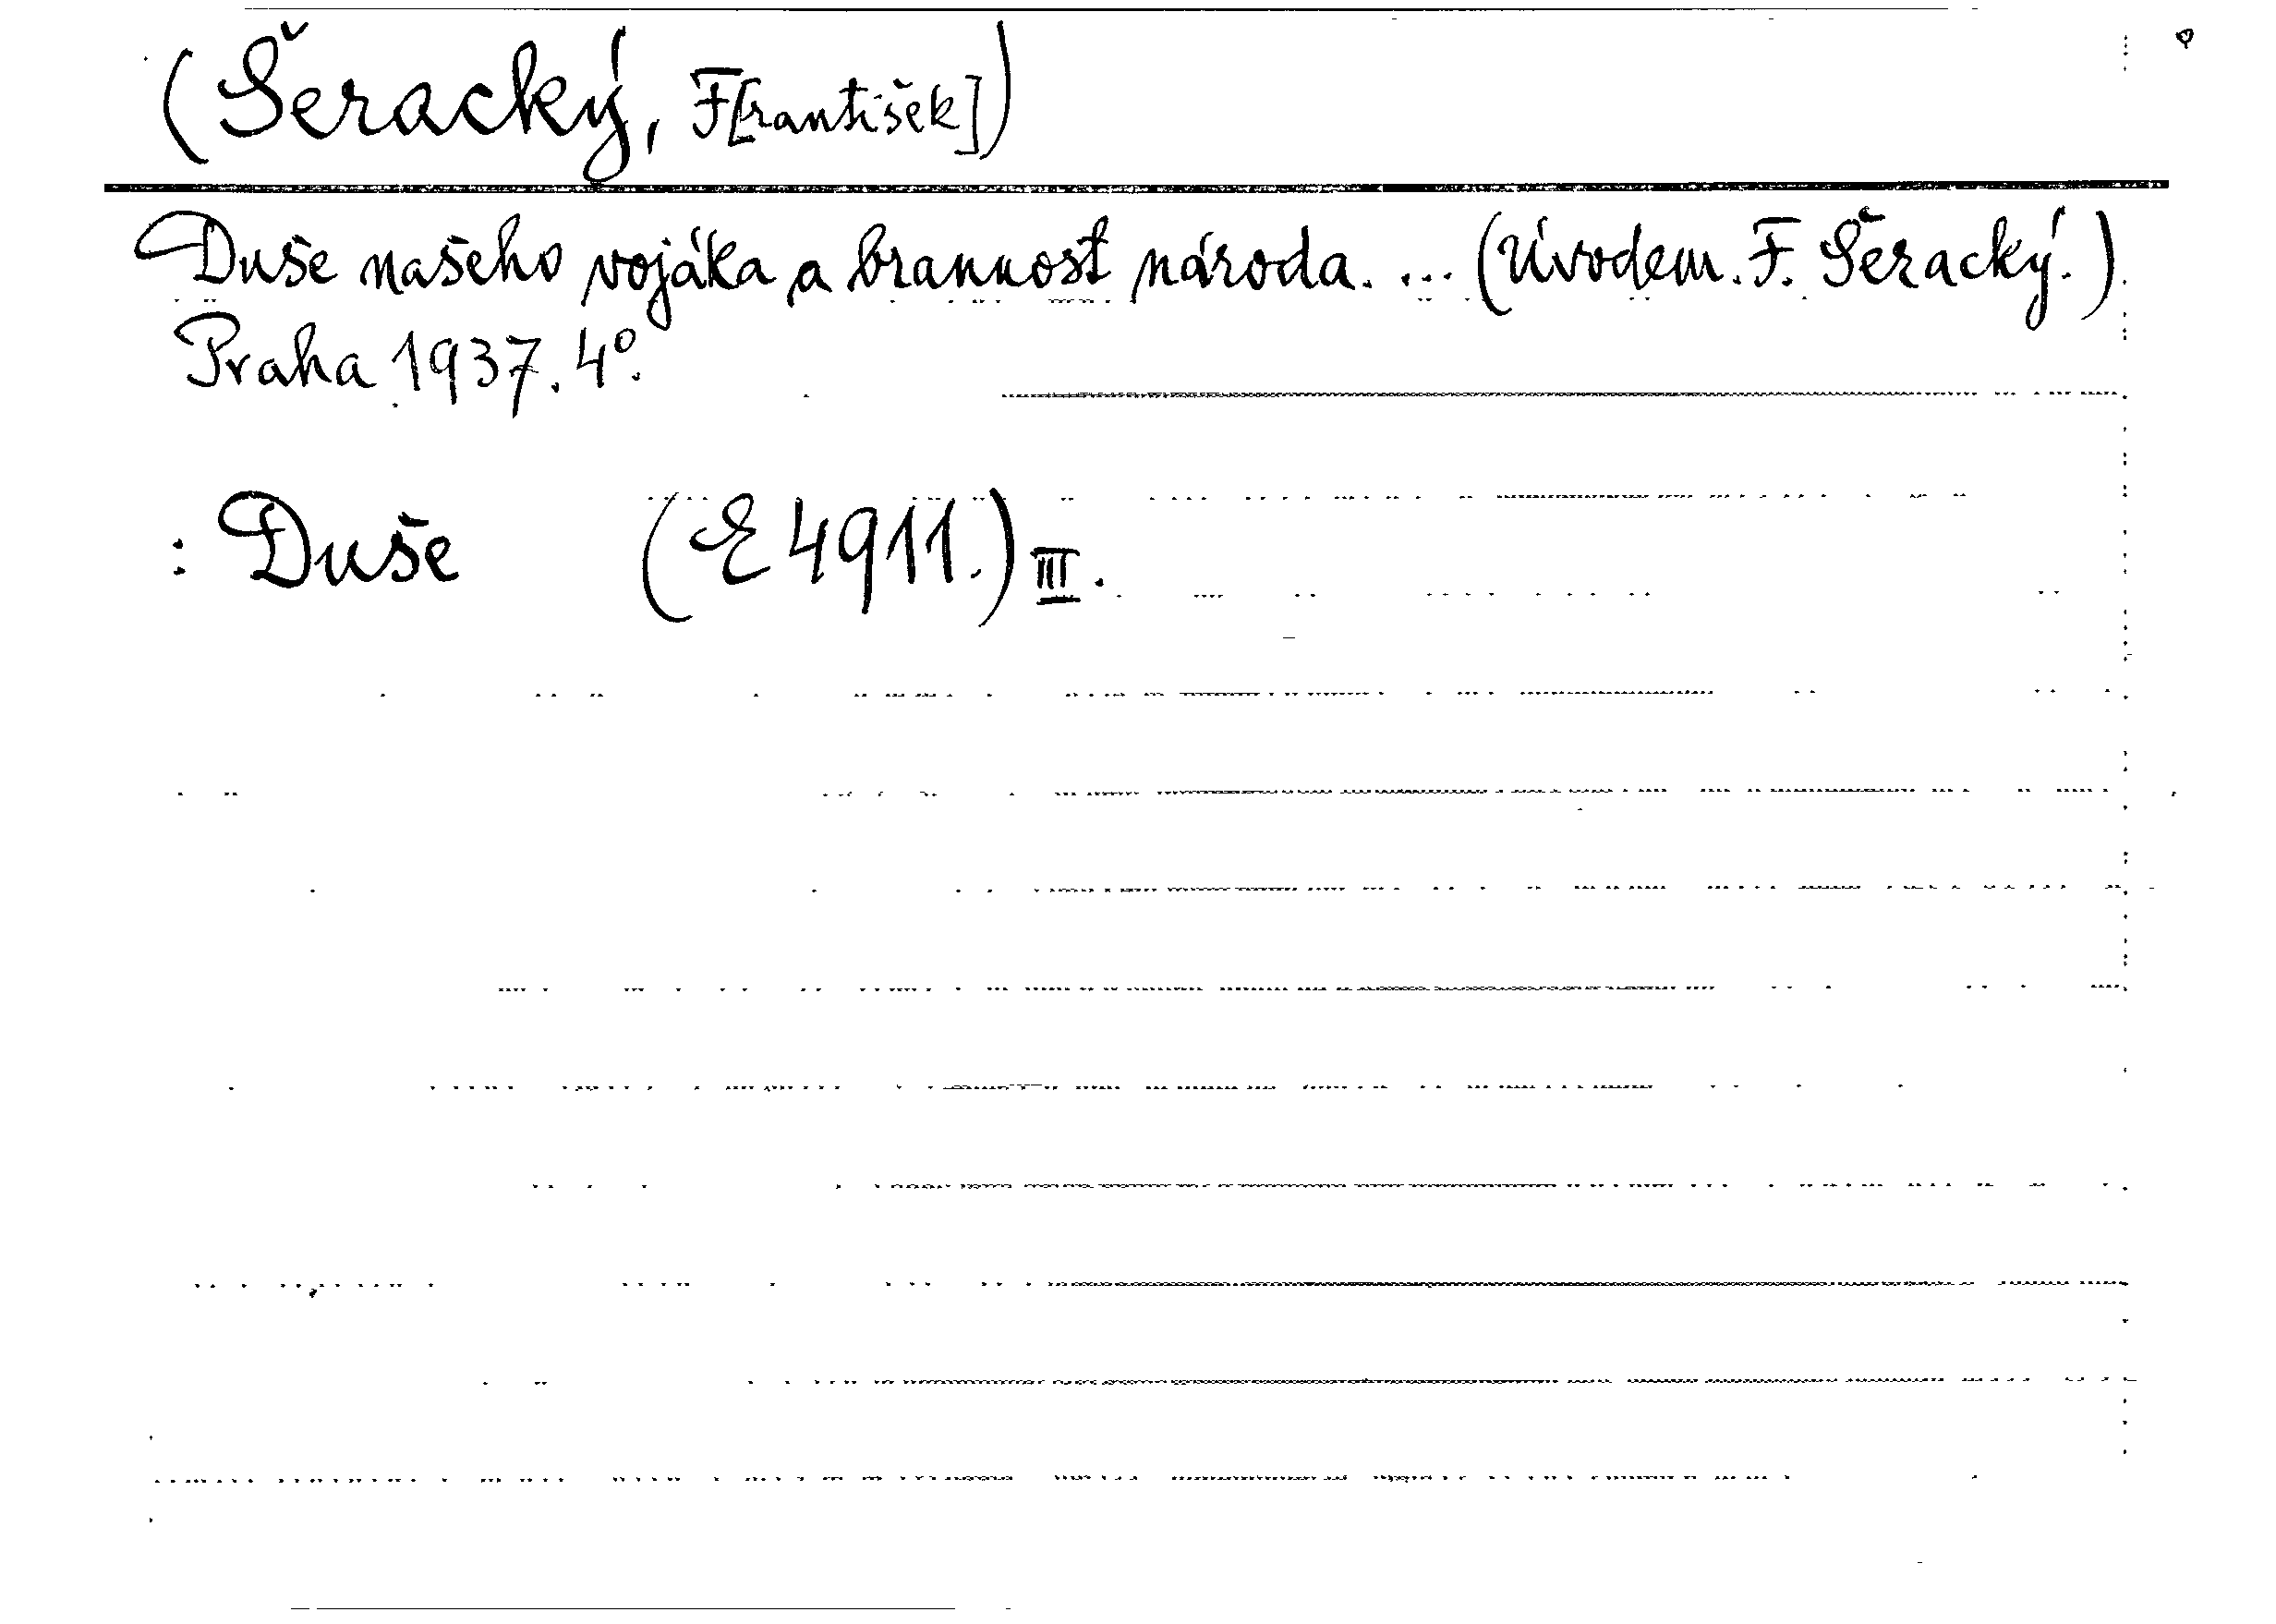 (Šeracký, F[rantišek])
Duše našeho vojáka a brannost národa. ... (Úvodem. F. Šeracký.)
Praha 1937. 4°.
: Duše (E 4911.) III.